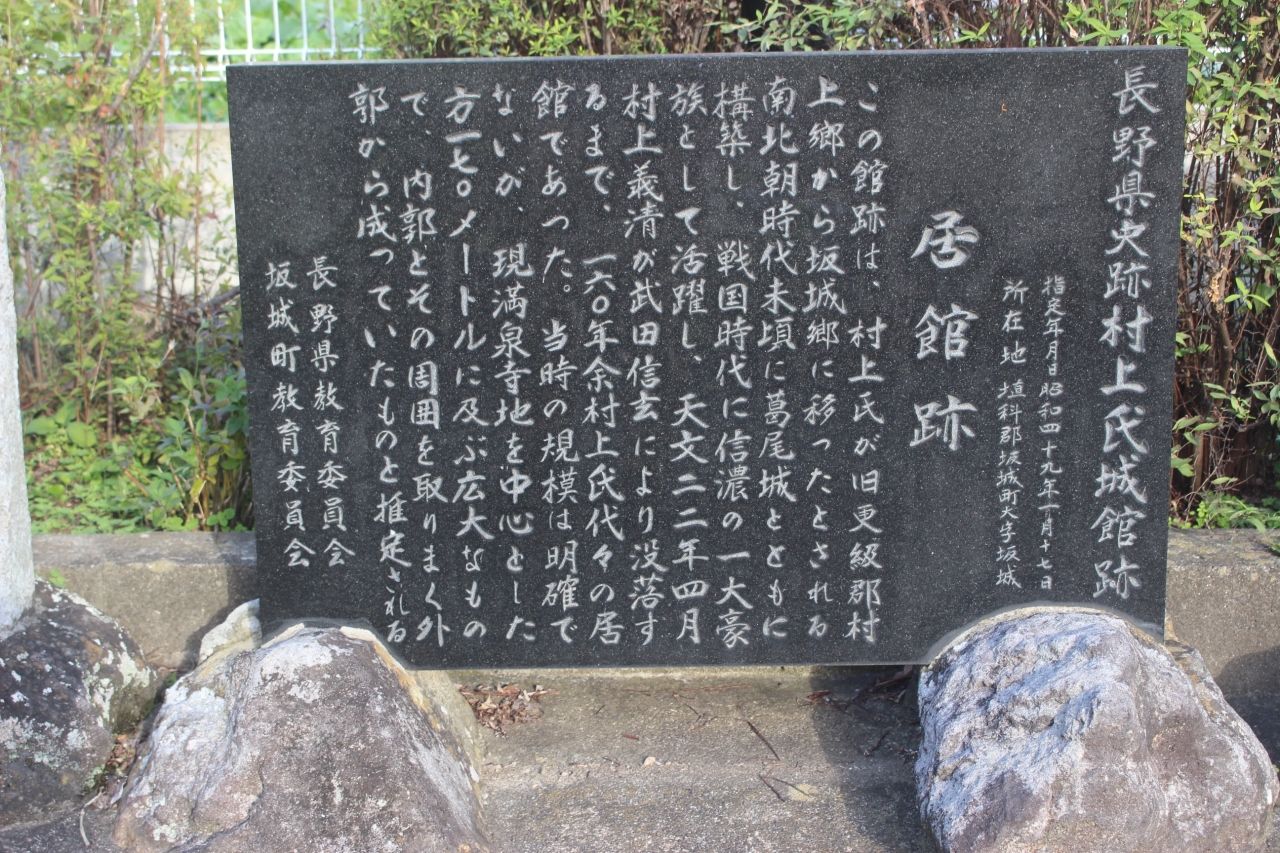 長野県史跡村上氏城館跡
指定年月日 昭和四十九年一月十七日
所在地 埴科郡坂城町大字坂城
居館跡
この館跡は、村上氏が旧更級郡村
上郷から坂城郷に移ったとされる
南北朝時代末頃に葛尾城とともに
構築し、戦国時代に信濃の一大豪
族として活躍し、天文二二年四月
村上義清が武田信玄により没落す
るまで、一六〇年余村上氏代々の居
館であった。当時の規模は明確で
ないが、現満泉寺地を中心とした
方一七〇メートルに及ぶ広大なもの
で、内郭とその周囲を取りまく外
郭から成っていたものと推定される
長野県教育委員会
坂城町教育委員会